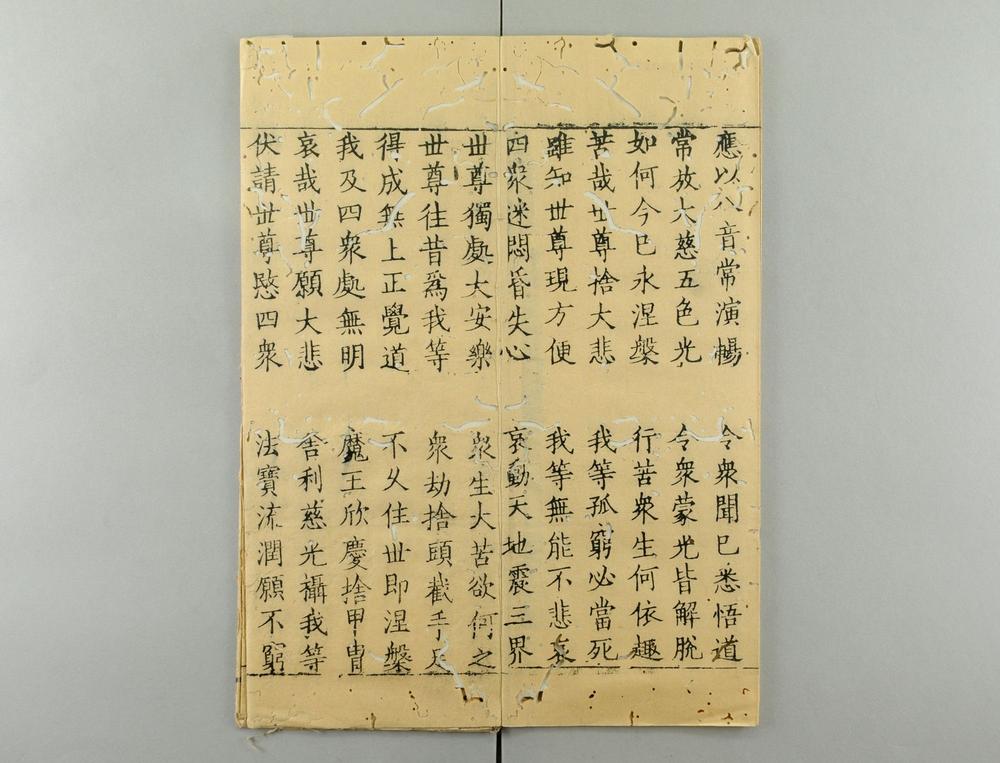 應以八音常演暢　令衆聞已悉悟道
常放大慈五色光　令衆蒙光皆解脫
如何今已永涅槃　行苦衆生何依趣
苦哉世尊捨大悲　我等孤窮必當死
雖知世尊現方便　我等無能不悲哀
四衆迷悶昏失心　哀動天地震三界
世尊獨處大安樂　衆生大苦欲何之
世尊往昔爲我等　衆劫捨頭截手足
得成無上正覺道　不久住世即涅槃
我及四衆處無明　魔王欣慶捨甲冑
哀哉世尊願大悲　舍利慈光攝我等
伏請世尊愍四衆　法寶流潤願不窮